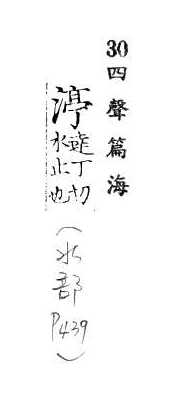 30 四聲篇海
渟
丁切
水止也
(水部 P439)